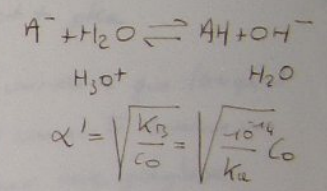 A⁻ + H₂O ⇌ AH + OH⁻
H₃O⁺ H₂O
α' = √(K_B / C₀) = √(10⁻¹⁴ / K_a) C₀